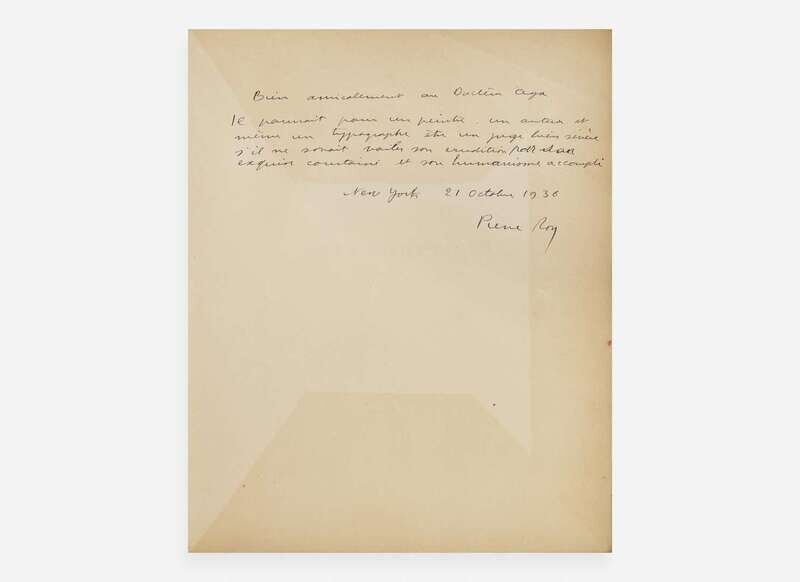 Bien amicalement au Docteur Aga
Il pourrait pour un peintre, un auteur et
même un typographe être un juge bien sévère
s'il ne savait voiler son erudition sous
exquise courtoisie et son humanisme accompli
New York 21 Octobre 1936
Pierre Roy